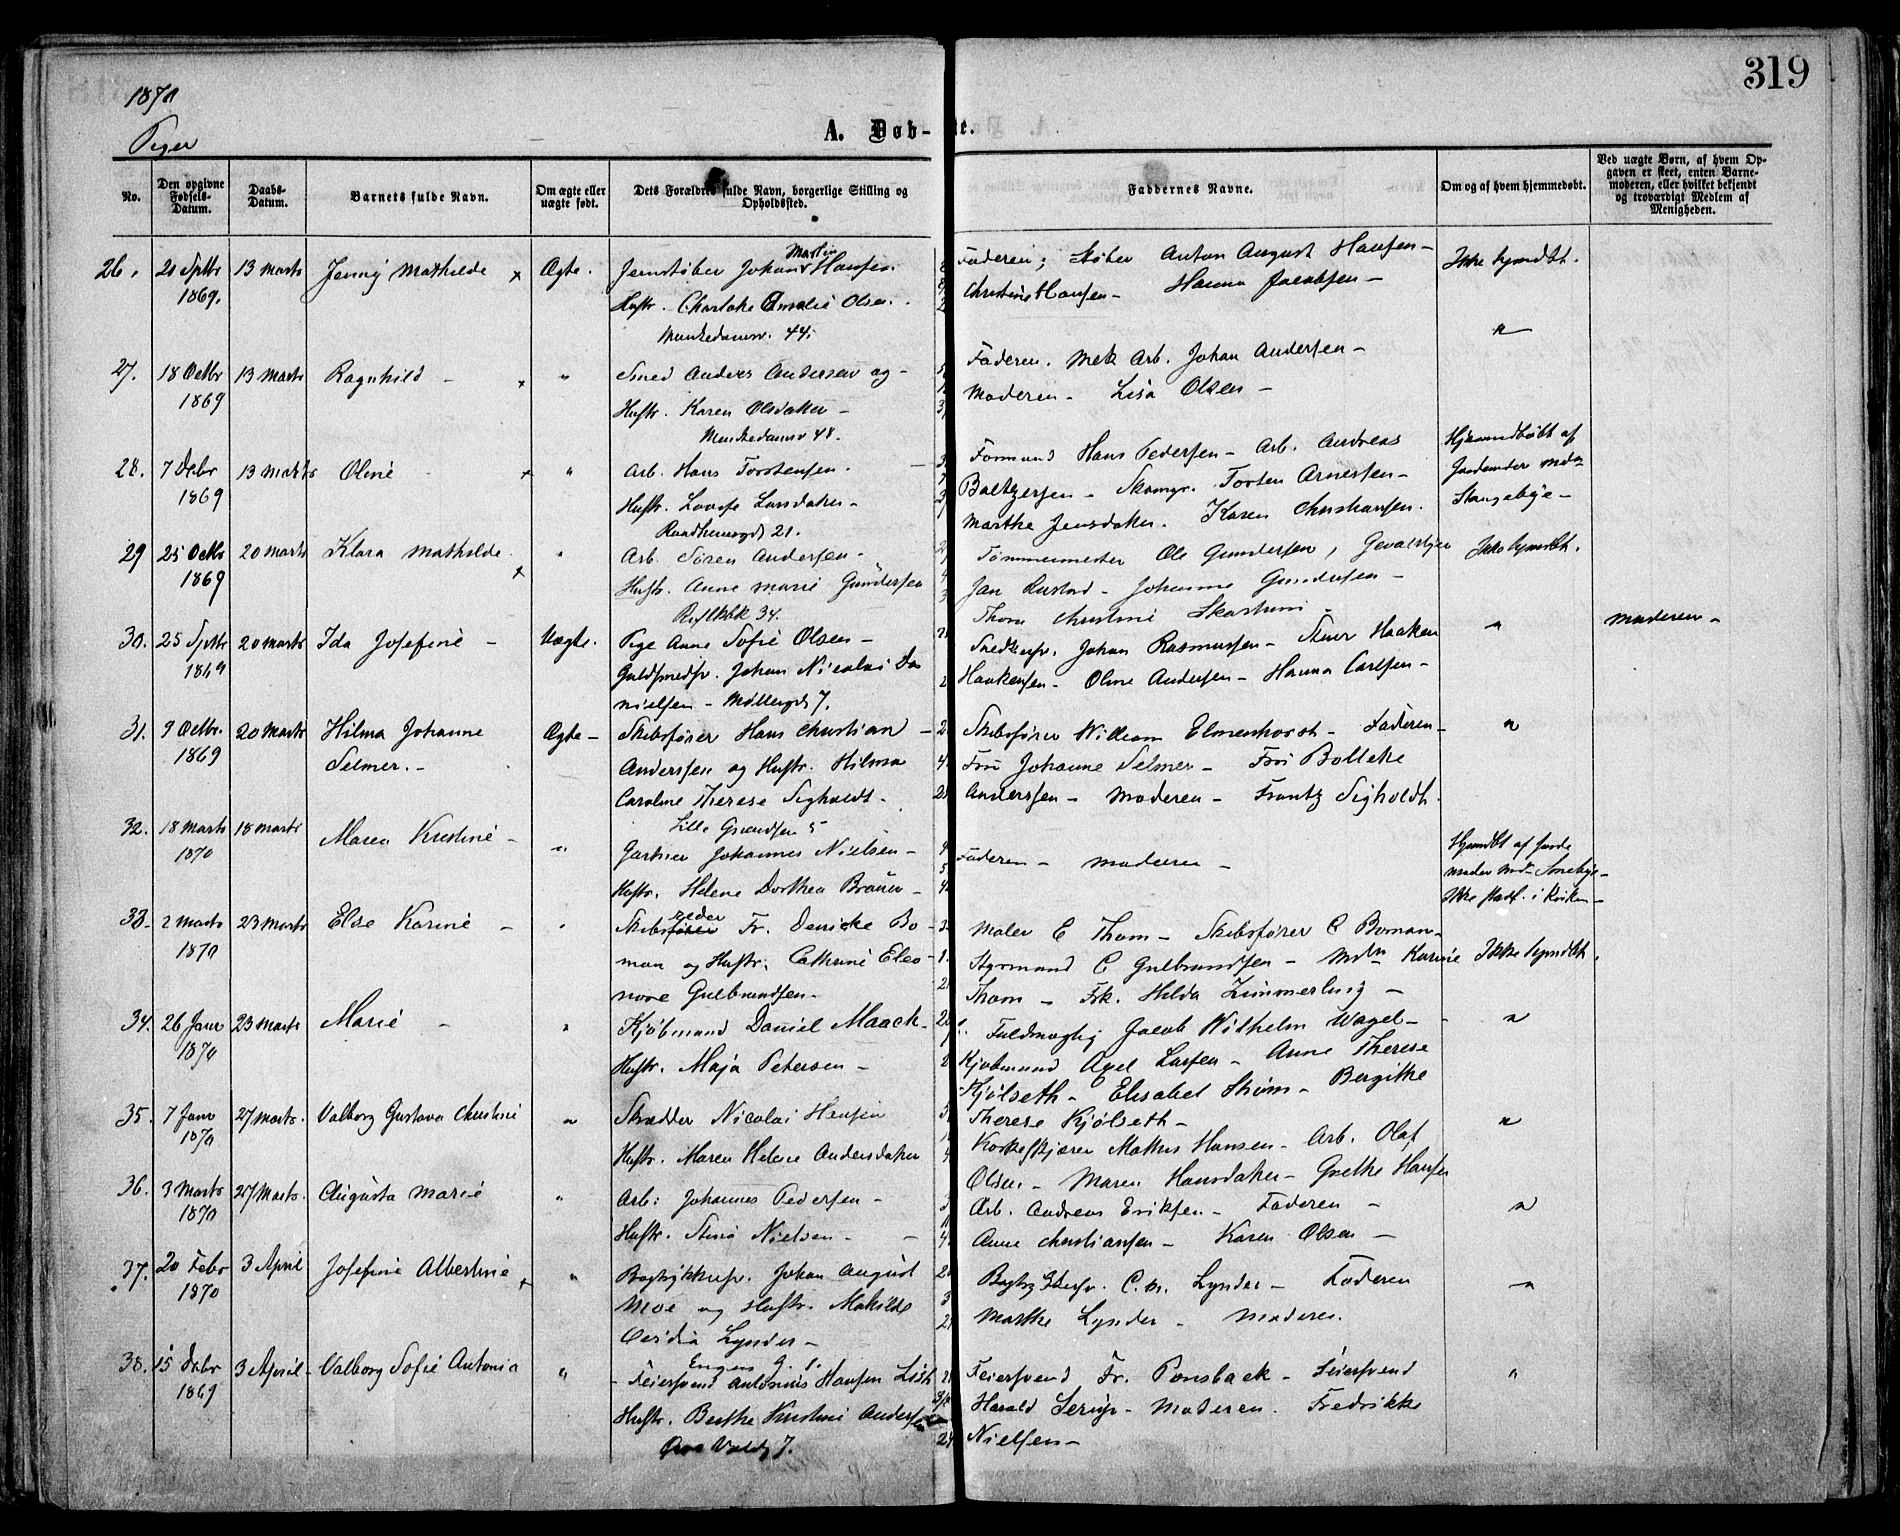 319
1870
Piger
A. Døb-te.
No.
Den opgivne Fødsels-Datum.
Daabs-Datum.
Barnets fulde Navn.
Om ægte eller uægte født.
Dets Forældres fulde Navn, borgerlige Stilling og Opholdssted.
Faddernes Navne.
Om og af hvem hjemmedøbt.
Ved uægte Børn, af hvem Op-
gaven er skeet, enten Barne-
moderen, eller hvilket bekjendt
og troværdigt Medlem af
Menigheden.
26. 21 Septbr 1869. 13 Marts Jenny Mathilde Ægte.
Jernstøber Johan Martin Hansen.
Hustr. Charlotte Amalie Olsen.
Munkedamsv. 44.
Faderen; Støber Anton August Hansen –
Christine Hansen – Hanna Jacobsen –
Ikke hjmdbt.
27. 18 Octbr 1869 13 Marts Ragnhild – "
Smed Anders Andersen og –
Hustr. Karen Olsdatter –
Munkedamsv 48.
Faderen. Mek Arb. Johan Andersen –
Moderen – Lisa Olsen –
"
28. 7 Debr 1869 13 Marts Oline "
Arb. Hans Torstensen.
Hustr. Lovise Larsdatter –
Raadhusgd 21.
Formand Hans Pedersen – Arb. Andreas
Baltzersen – Skomgr. Torsten Arnesen –
Marthe Jensdatter. Karen Christiansen.
Hjemmedøbt af
Jordemoder Mdm
Stangebye –
29 25 Octbr 1869 20 Marts Klara Mathilde "
Arb. Søren Andersen –
Hustr. Anne Marie Gundersen
34.
Tømmermester Ole Gundersen,
Jan Rustad – Johanne Gundersen –
Thora Christine
Ikke hjmdbt.
30. 25 Septbr 1869 20 Marts Ida Josefine – Uægte.
Pige Anne Sofie Olsen –
Guldsmedsv. Johan Nicolai Da
nielsen – Møllergd 7.
Johan Rasmussen – Haaken
Haakensen – Oline Andersen – Hanna Carlsen –
"
Moderen –
31. 9 Octbr. 1869 20 Marts Hilma Johanne
Selmer. –
Ægte –
Skibsfører Hans Christian –
Anderssen og Hustr. Hilma
Caroline Therese Sigholdt.
Lille Grændsen 5
Skibsfører William Elmenhorst – Faderen –
Fru Johanne Selmer – Fru Bollette
Anderssen – Moderen – Frantz Sigholdt.
"
32. 18 Marts 1870 18 Marts Maren Kristine – "
Gartner Johannes Nielsen –
Hustr. Helene Dorthea Bråten –
Faderen – Moderen –
Hjmdbt af Jorde
moder Md –
Ikke stadf. i Kirken –
33. 2 Marts 1870 23 Marts Else Karine – "
Skibsreder Fr. Denicke Bo –
man og Hustr. Cathrine Eleo –
nore Gulbrandsen –
Maler E Thom – Skibsfører C Boman –
Styrmand C Gulbrandsen – Mdm Karine
Thom – Frk. Hilda Zimmerling –
Ikke hjmdbt.
34. 26 Janr 1870 23 Marts Marie – "
Kjøbmand Daniel Maack –
Hustr. Maja Petersen –
Fuldmægtig Jacob Wilhelm Wagel –
Kjøbmand Axel Larsen – Anne Therese
Kjølseth – Elisabet Strøm – Bergitte
Therese Kjølseth –
"
35. 7 Janr 1870 27 Marts. Valborg Gustava Christine "
Skrædder Nicolai Hansen
Hustr. Maren Helene Andersdatter
Korkeskjærer Mathis Hansen – Arb. Olaf
Olsen – Maren Hansdatter – Grethe Hansen
"
36. 3 Marts 1870 27 Marts. Augusta Marie "
Arb: Johannes Pedersen –
Hustr. Stina Nielsen –
Arb. Andreas Eriksen – Faderen –
Anne Christiansen – Karen Olsen –
"
37. 20 Febr 1870 3 April Josefine Albertine "
Bogtrykkersv. Johan August
Moe og Hustr. Mathilde
Lynder –
C. M. Lynder – Faderen
Marthe Lynder – Moderen.
"
38. 15 Debr 1869 3 April – Valborg Sofie Antonia "
Engens G. 1.
Feiersvend Antonius Hansen
Hustr. Berthe Kristine Andersen
7.
Feiersvend Fr. Ponsbach – Feiersvend
Harald Serup – Moderen. Fredrikke
Nielsen –
"